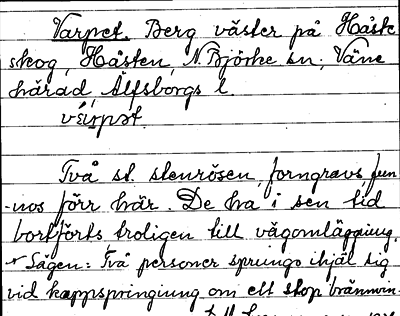 Varpet. Berg väster på Håste
skog, Håsten, N. Björke sn, Väne
härad, Älfsborgs l.
Två st. stenrösen, forngravs fun
-nos förr här. De ha i sen tid
bortförts troligen till vägomläggning.
Sägen: Två personer sprungo ihjäl sig
vid kappspringning om ett stop brännvin